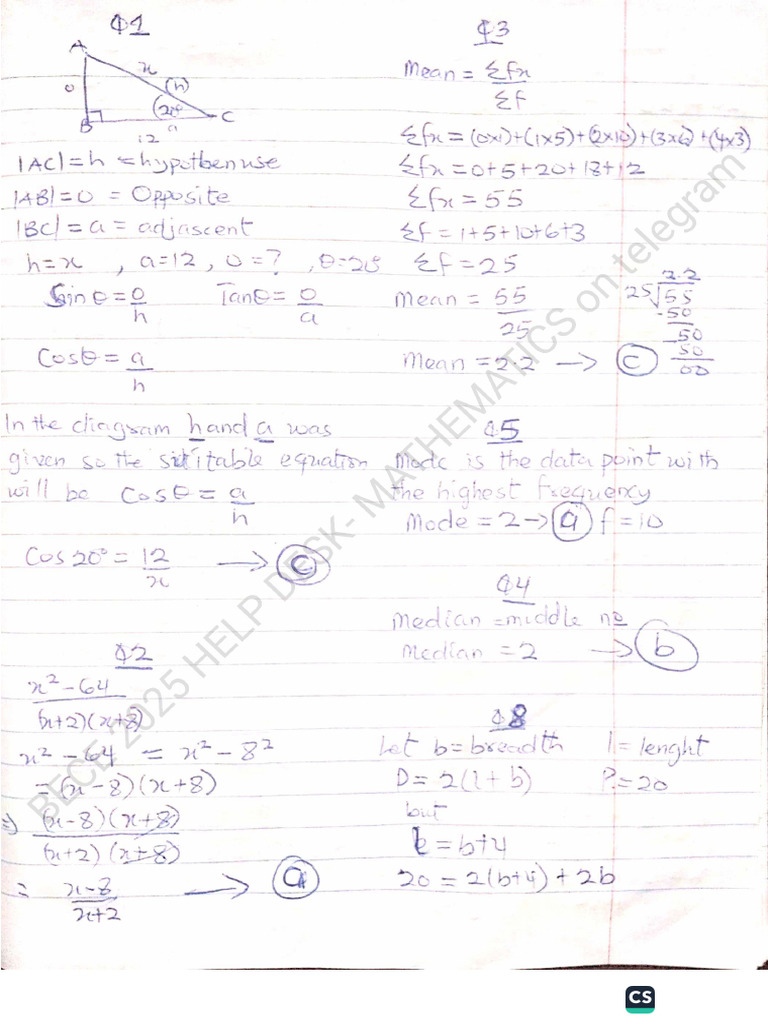 Q1
A
x
(h)
o
(20°
a
B
C
12
|AC| = h = hypothenuse
|AB| = o = Opposite
|BC| = a = adjascent
h = x , a = 12 , o = ? , θ = 20
Sinθ = o/h Tanθ = o/a
Cosθ = a/h
In the diagram h and a was
given so the suitable equation
will be Cosθ = a/h
Cos 20° = 12/x → (C)
Q2
x² - 64
(x+2)(x+8)
x² - 64 = x² - 8²
= (x - 8)(x + 8)
⇒ (x-8)(x+8)
(x+2)(x+8)
= x-8
x+2
→ (a)
Q3
Mean = Σfx
Σf
Σfx = (0x1)+(1x5)+(2x10)+(3x6)+(4x3)
Σfx = 0+5+20+18+12
Σfx = 55
Σf = 1+5+10+6+3
Σf = 25
Mean = 55
25
2.2
25√55
-50
50
50
00
Mean = 2.2 → (C)
Q5
Mode is the data point with
the highest frequency
Mode = 2 → (a) f = 10
Q4
Median = middle no
Median = 2 → (b)
Q8
Let b = breadth l = lenght
D = 2(l + b) P = 20
but
l = b+4
20 = 2(b+4) + 2b
BECE 2025 HELP DESK- MATHEMATICS on telegram
CS